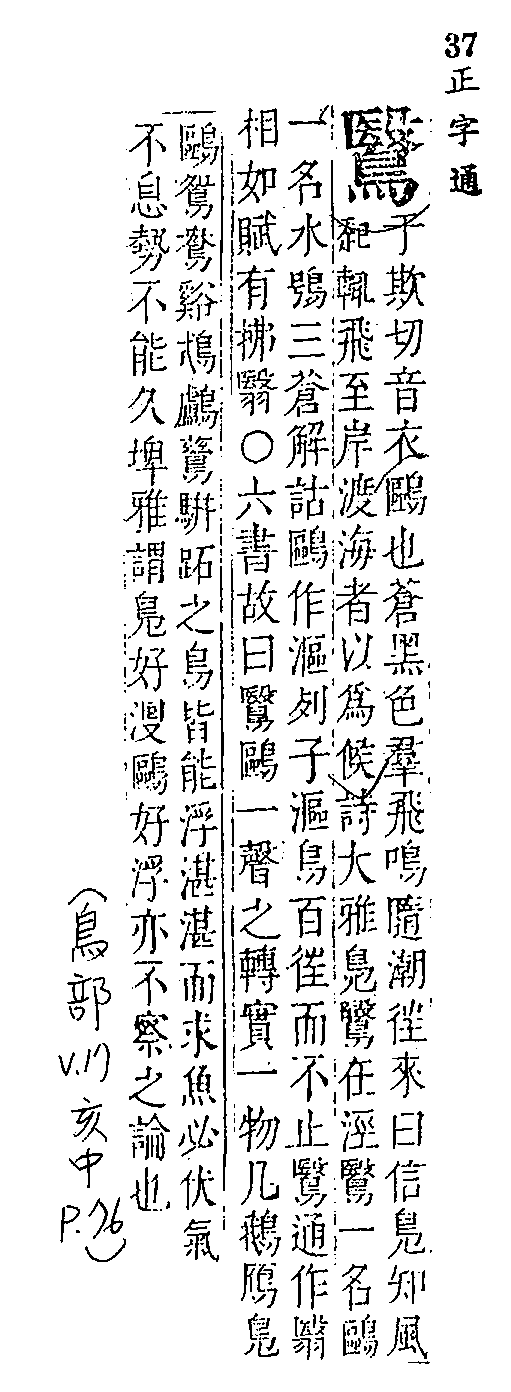 37正字通
鷖
于欺切音衣鷗也蒼黑色羣飛鳴隨潮往來曰信鳧知風
起輒飛至岸渡海者以爲候詩大雅鳧鷖在涇鷖一名鷗
一名水鴞三蒼解詁鷗作漚列子漚鳥百往而不止鷖通作翳
相如賦有拂翳〇六書故曰鷖鷗一聲之轉實一物凡鵝鴈鳧
鷗鴛鴦谿鴆鸕鶿駢跖之鳥皆能浮湛湛而求魚必伏氣
不息勢不能久埤雅謂鳧好沒鷗好浮亦不察之論也
(鳥部
V.17
亥中
P.76)